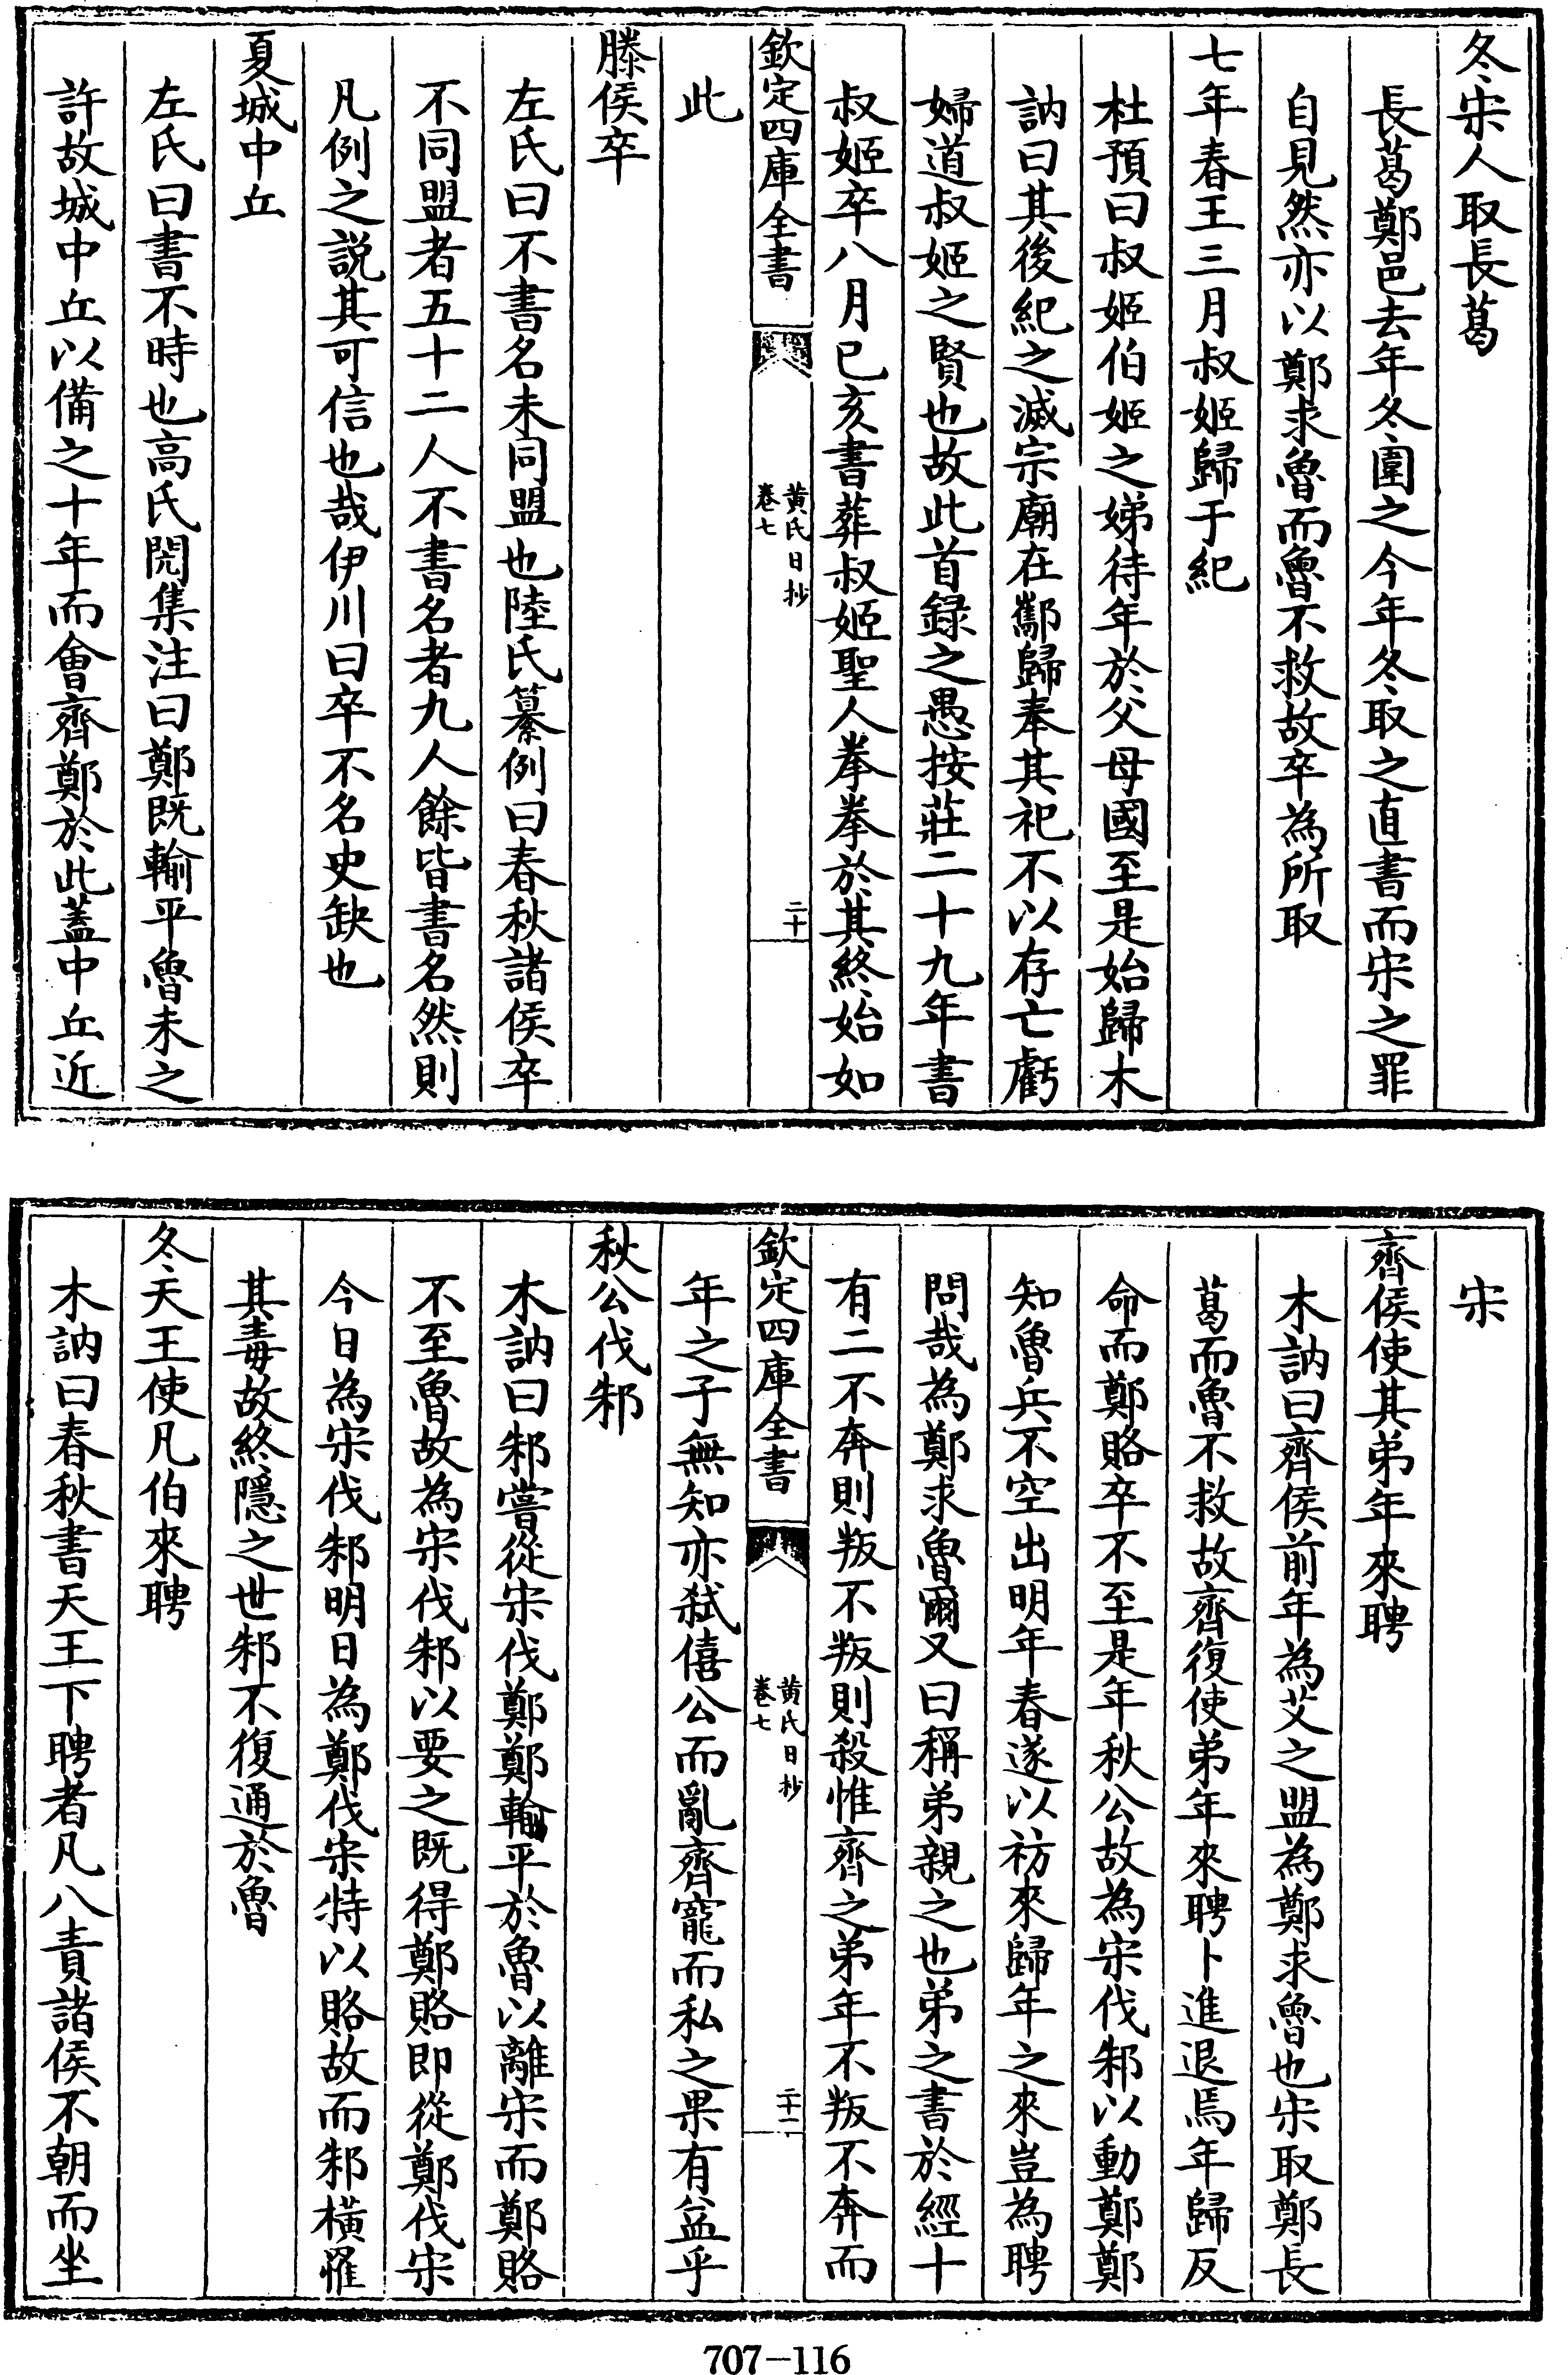 冬宋人取長葛
長葛鄭邑去年冬圍之今年冬取之直書而宋之罪
自見然亦以鄭求魯而魯不救故卒為所取
七年春王三月叔姬歸于紀
杜預曰叔姬伯姬之娣待年於父母國至是始歸木
訥曰其後紀之滅宗廟在酅歸奉其祀不以存亡虧
婦道叔姬之賢也故此首録之愚按莊二十九年書
叔姬卒八月已亥書葬叔姬聖人拳拳於其終始如
欽定四庫全書
黄氏日抄
卷七
二十
此
滕侯卒
左氏曰不書名未同盟也陸氏纂例曰春秋諸侯卒
不同盟者五十二人不書名者九人餘皆書名然則
凡例之説其可信也哉伊川曰卒不名史缺也
夏城中丘
左氏曰書不時也高氏閌集注曰鄭既輸平魯未之
許故城中丘以備之十年而會齊鄭於此蓋中丘近
宋
齊侯使其弟年來聘
木訥曰齊侯前年為艾之盟為鄭求魯也宋取鄭長
葛而魯不救故齊復使弟年來聘卜進退焉年歸反
命而鄭賂卒不至是年秋公故為宋伐邾以動鄭鄭
知魯兵不空出明年春遂以祊來歸年之來豈為聘
問哉為鄭求魯爾又曰稱弟親之也弟之書於經十
有二不奔則叛不叛則殺惟齊之弟年不叛不奔而
欽定四庫全書
黄氏日抄
卷七
二十一
年之子無知亦弑僖公而亂齊寵而私之果有益乎
秋公伐邾
木訥曰邾嘗從宋伐鄭鄭輸平於魯以離宋而鄭賂
不至魯故為宋伐邾以要之既得鄭賂即從鄭伐宋
今日為宋伐邾明日為鄭伐宋特以賂故而邾橫罹
其毒故終隱之世邾不復通於魯
冬天王使凡伯來聘
木訥曰春秋書天王下聘者凡八責諸侯不朝而坐
707-116